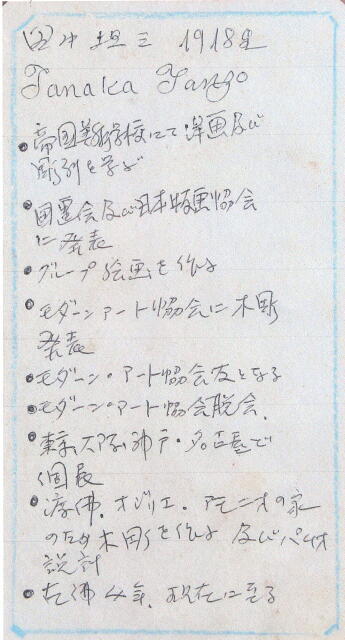 田中坦三 1918生
Tanaka Tanzo
•帝国美術学校にて洋画及び
彫刻を学ぶ
•国画会及び日本版画協会
に発表
•グループ絵画を作る
•モダーンアート協会に木彫
発表
•モダーン・アート協会会友となる
•モダーン・アート協会脱会.
•東京、大阪、神戸・名古屋で
個展
•渡佛. オジリエ. アモニオの家
のため木彫を作る 及びパチオ
設計
•在佛4年、現在に至る